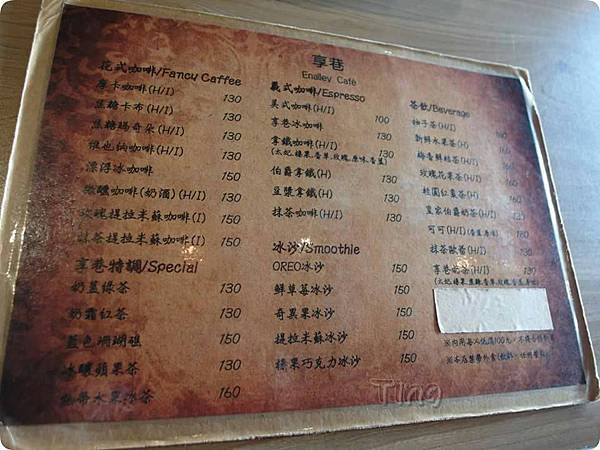 享巷
Enalley Café
花式咖啡/Fancy Caffee
摩卡咖啡(H/I) 130
焦糖卡布(H/I) 130
焦糖瑪奇朵(H/I) 130
維也納咖啡(H/I) 130
漂浮冰咖啡 150
微醺咖啡(奶酒)(H/I) 130
玫瑰提拉米蘇咖啡(I) 150
抹茶提拉米蘇咖啡(I) 150
享巷特調/Special
奶蓋綠茶 130
奶霜紅茶 130
藍色珊瑚礁 150
冰釀蘋果茶 130
熱帶水果冰茶 160
義式咖啡/Espresso
美式咖啡(H/I) 100
享巷冰咖啡 130
拿鐵咖啡(H/I) 130
(太妃.榛果.香草.玫瑰.原味.焦糖)
伯爵拿鐵(H) 130
豆漿拿鐵(H/I) 130
抹茶咖啡(H/I) 130
冰沙/Smoothie
OREO冰沙 150
鮮草莓冰沙 150
奇異果冰沙 150
提拉米蘇冰沙 150
榛果巧克力冰沙 150
茶飲/Beverage
柚子茶(H/I)
新鮮水果茶(H/I) 160
梅香鮮桔茶(H/I)
玫瑰花果茶(H/I)
桂圓紅棗茶(H)
皇家伯爵奶茶(H/I)
可可(H/I)
抹茶歐蕾(H/I)
享巷奶茶(H/I)
※內用每人低消100元,
※本店禁帶外食
Ting